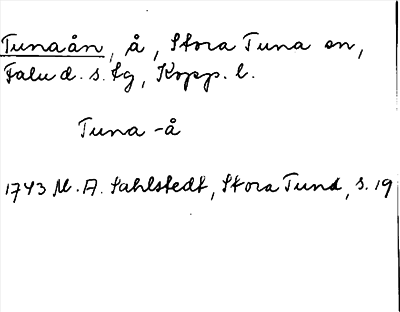 Tunaån, å, Stora Tuna sn,
Falu d. s. tg, Kopp. l.
Tuna-å
1743 M. A. Sahlstedt, Stora Tund, s. 19